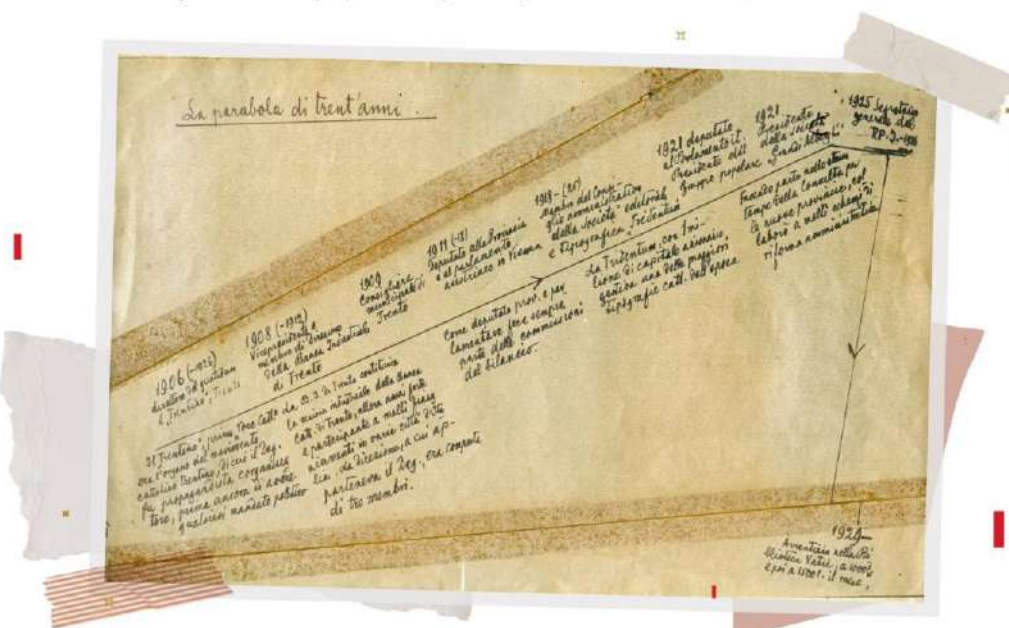 La parabola di trent'anni.
1906 (-1926)
direttore del quotidiano
"il Trentino", Trento
1908 (-1912)
Vicepresidente e
membro di direzione
della Banca Industriale
di Trento
1909
Consigliere
municipale di
Trento
1911 (-18)
Deputato alla Provincia
e al parlamento
austriaco in Vienna
1918-(25)
membro del Consi-
glio amministrativo
della società editoriale
e tipografica Tridentum
1921 deputato
al Parlamento it.
Presidente del
Gruppo popolare
1921
Presidente
della società
1925 Segretario
generale del
P.P.I.-1926
Il "Trentino", prima "Voce Catt."
era l'organo del movimento
cattolico trentino, di cui il Deg.
fu propagandista e organizza
tore, prima ancora di avere
qualsiasi mandato politico
La B. I. di Trento costituiva
la mano industriale della Banca
Catt. di Trento, allora assai forte
e partecipante a molti
in varie città. Det-
ta direzione, a cui ap-
parteneva il Deg., era composta
di tre membri.
Come deputato prov. e par
lamentare fece sempre
parte delle commissioni
del bilancio.
La Tridentum, con 1 mi-
lione di capitale azionario,
gestiva una delle maggiori
tipografie catt. dell'epoca
Facendo parte nello stesso
tempo della Consulta per
le nuove provincie, col
laborò a molti schemi di
riforma amministrativa
1929
Avventizio nella Bi
blioteca Vatic., a 1000
e poi a 1500 l. il mese,